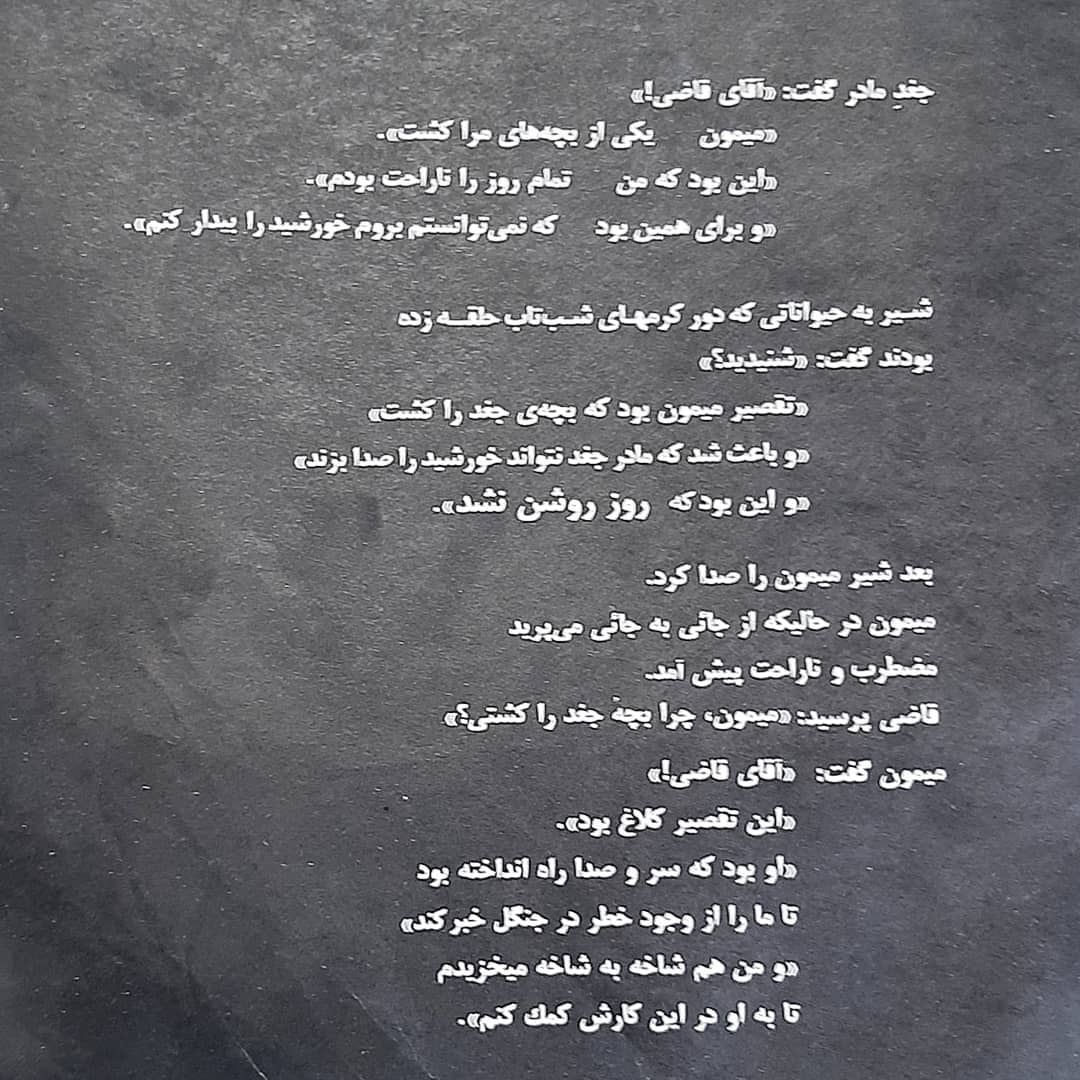 جغدِ مادر گفت: «آقای قاضی!»
«میمون یکی از بچه‌های مرا کشت».
«این بود که من تمام روز را ناراحت بودم».
«و برای همین بود که نمی‌توانستم بروم خورشید را بیدار کنم».
شیر به حیواناتی که دور کرمهای شب‌تاب حلقه زده
بودند گفت: «شنیدید؟»
«تقصیر میمون بود که بچه‌ی جغد را کشت»
«و باعث شد که مادر جغد نتواند خورشید را صدا بزند»
«و این بود که روز روشن نشد».
بعد شیر میمون را صدا کرد.
میمون در حالیکه از جائی به جائی می‌پرید
مضطرب و ناراحت پیش آمد.
قاضی پرسید: «میمون، چرا بچهٔ جغد را کشتی؟»
میمون گفت: «آقای قاضی!»
«این تقصیر کلاغ بود».
«او بود که سر و صدا راه انداخته بود
تا ما را از وجود خطر در جنگل خبر کند»
«و من هم شاخه به شاخه میخزیدم
تا به او در این کارش کمك کنم».